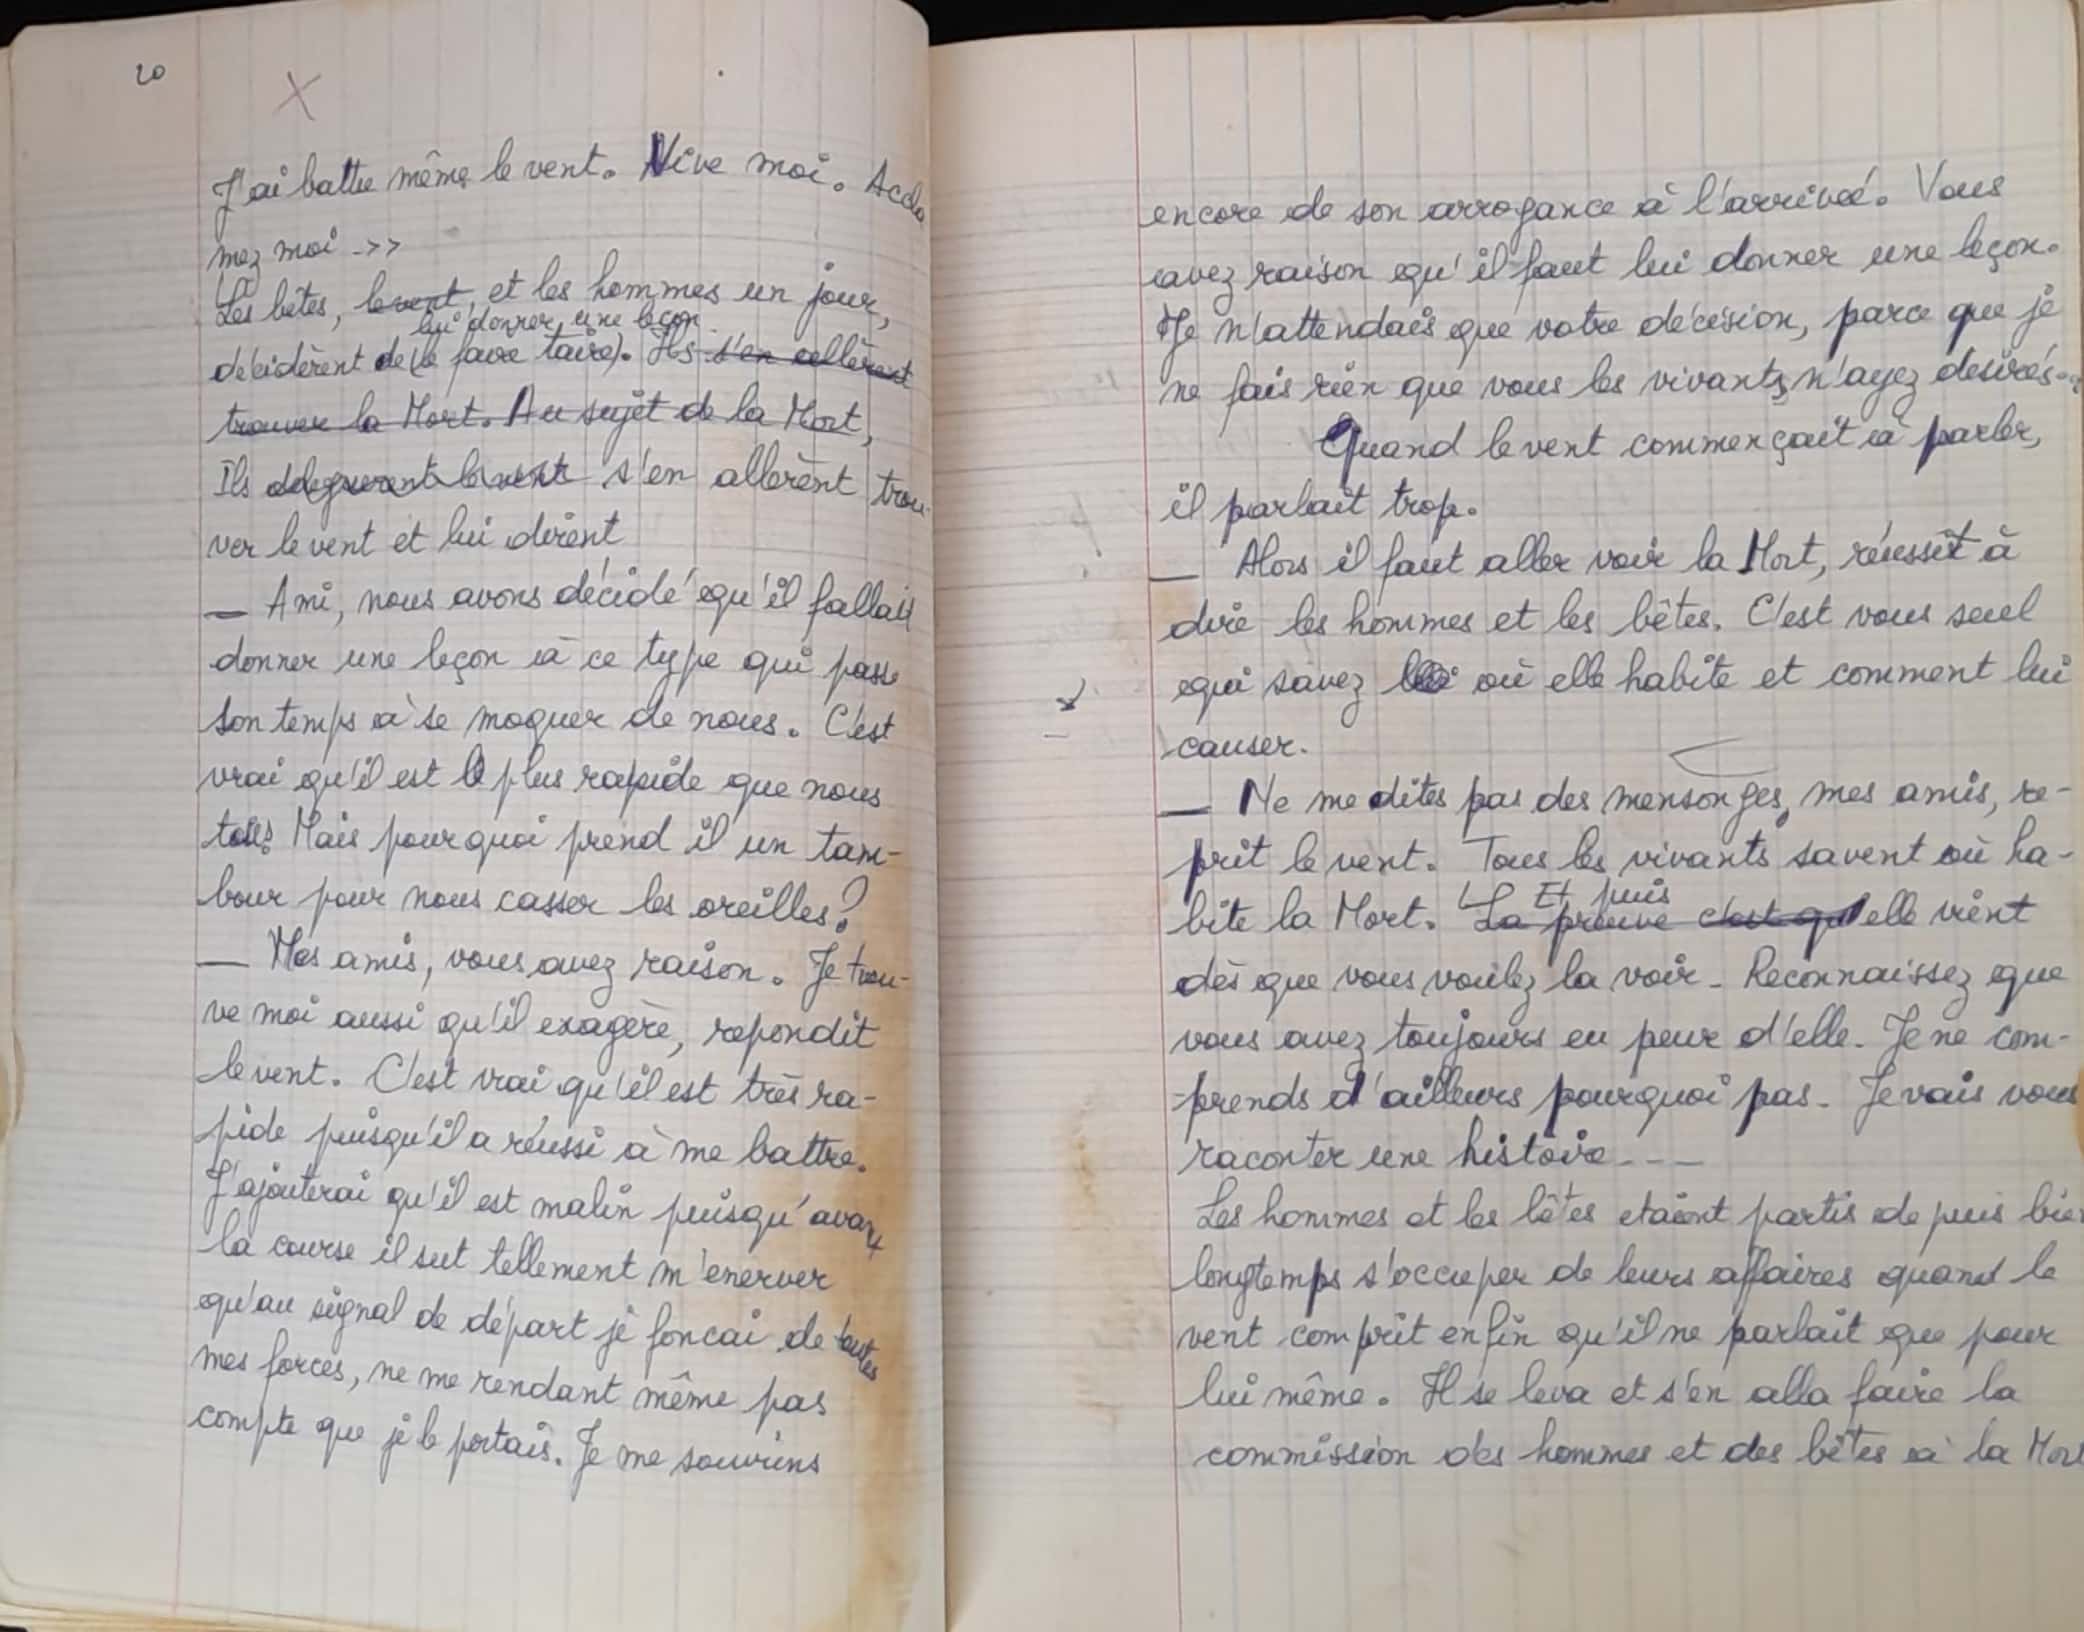 20
J'ai battu même le vent. Vive moi. Accla
mez moi ->>
Les bêtes, le vent, et les hommes un jour,
lui donner une leçon
décidèrent de (le faire taire). Ils s'en allèrent
trouver la Mort. Au sujet de la Mort,
Ils s'en allèrent trou
ver le vent et lui dirent
— Ami, nous avons décidé qu'il fallait
donner une leçon à ce type qui passe
son temps à se moquer de nous. C'est
vrai qu'il est le plus rapide que nous
tous. Mais pourquoi prend il un tam-
bour pour nous casser les oreilles?
— Mes amis, vous avez raison. Je trou-
ve moi aussi qu'il exagère, repondit
le vent. C'est vrai qu'il est très ra-
pide puisqu'il a réussi à me battre.
J'ajouterai qu'il est malin puisqu'avant
la course il sut tellement m'enerver
qu'au signal de départ je foncai de toutes
mes forces, ne me rendant même pas
compte que je le portais. Je me souviens
encore de son arrogance à l'arrivée. Vous
avez raison qu'il faut lui donner une leçon.
Je n'attendais que votre décision, parce que je
ne fais rien que vous les vivants n'ayez desirés...
Quand le vent commençait à parler,
il parlait trop.
— Alors il faut aller voir la Mort, réussit à
dire les hommes et les bêtes. C'est vous seul
qui savez où elle habite et comment lui
causer.
— Ne me dites pas des mensonges, mes amis, re-
prit le vent. Tous les vivants savent où ha-
Et puis
bite la Mort. La preuve c'est qu'elle vient
dès que vous voulez la voir - Reconnaissez que
vous avez toujours eu peur d'elle. Je ne com-
-prends d'ailleurs pourquoi pas - Je vais vous
raconter une histoire ---
Les hommes et les bêtes etaient partis de puis bien
longtemps s'occuper de leurs affaires quand le
vent comprit enfin qu'il ne parlait que pour
lui même. Il se leva et s'en alla faire la
commission des hommes et des bêtes à la Mort